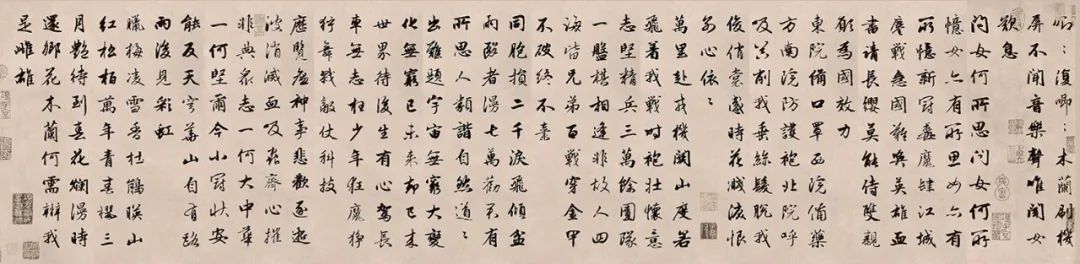 唧〻復唧〻木蘭刷機
屏不聞音樂聲唯聞女
歎息
問女何所思問女何所
憶女亦有所思女亦有
所憶新冠蠱魔肆江城
鏖戰急國難興英雄血
書請長纓莫能侍雙親
願為國放力
東院備口罩西院備藥
方南院防護袍北院呼
吸器割我垂絲鬢脫我
俊俏裳感時花濺淚恨
別心依〻
萬里赴戎機關山度若
飛着我戰時袍壯懷意
志堅精兵三萬餘團隊
一盤棋相逢非故人四
海皆兄弟百戰穿金甲
不破終不還
同胞損二千淚飛傾盆
雨酣者漫七萬勸君有
所思人類諧自然道〻
出難題宇宙無窮大變
化無窮已未來却已來
世界待後生有心駕長
車無志枉少年狂魔猙
獰舞戰敵仗科技
應覽神事悲歡逐逝
波消滅血吸蟲齊心摧
非典眾志一何大中華
一何堅爾今小冠狀安
能反天寄萬山自有路
雨後見彩虹
臘梅凌雪香杜鵑映山
紅松柏萬年青春櫻三
月艷待到春花爛漫時
還鄉花木蘭何需辯我
是雌雄